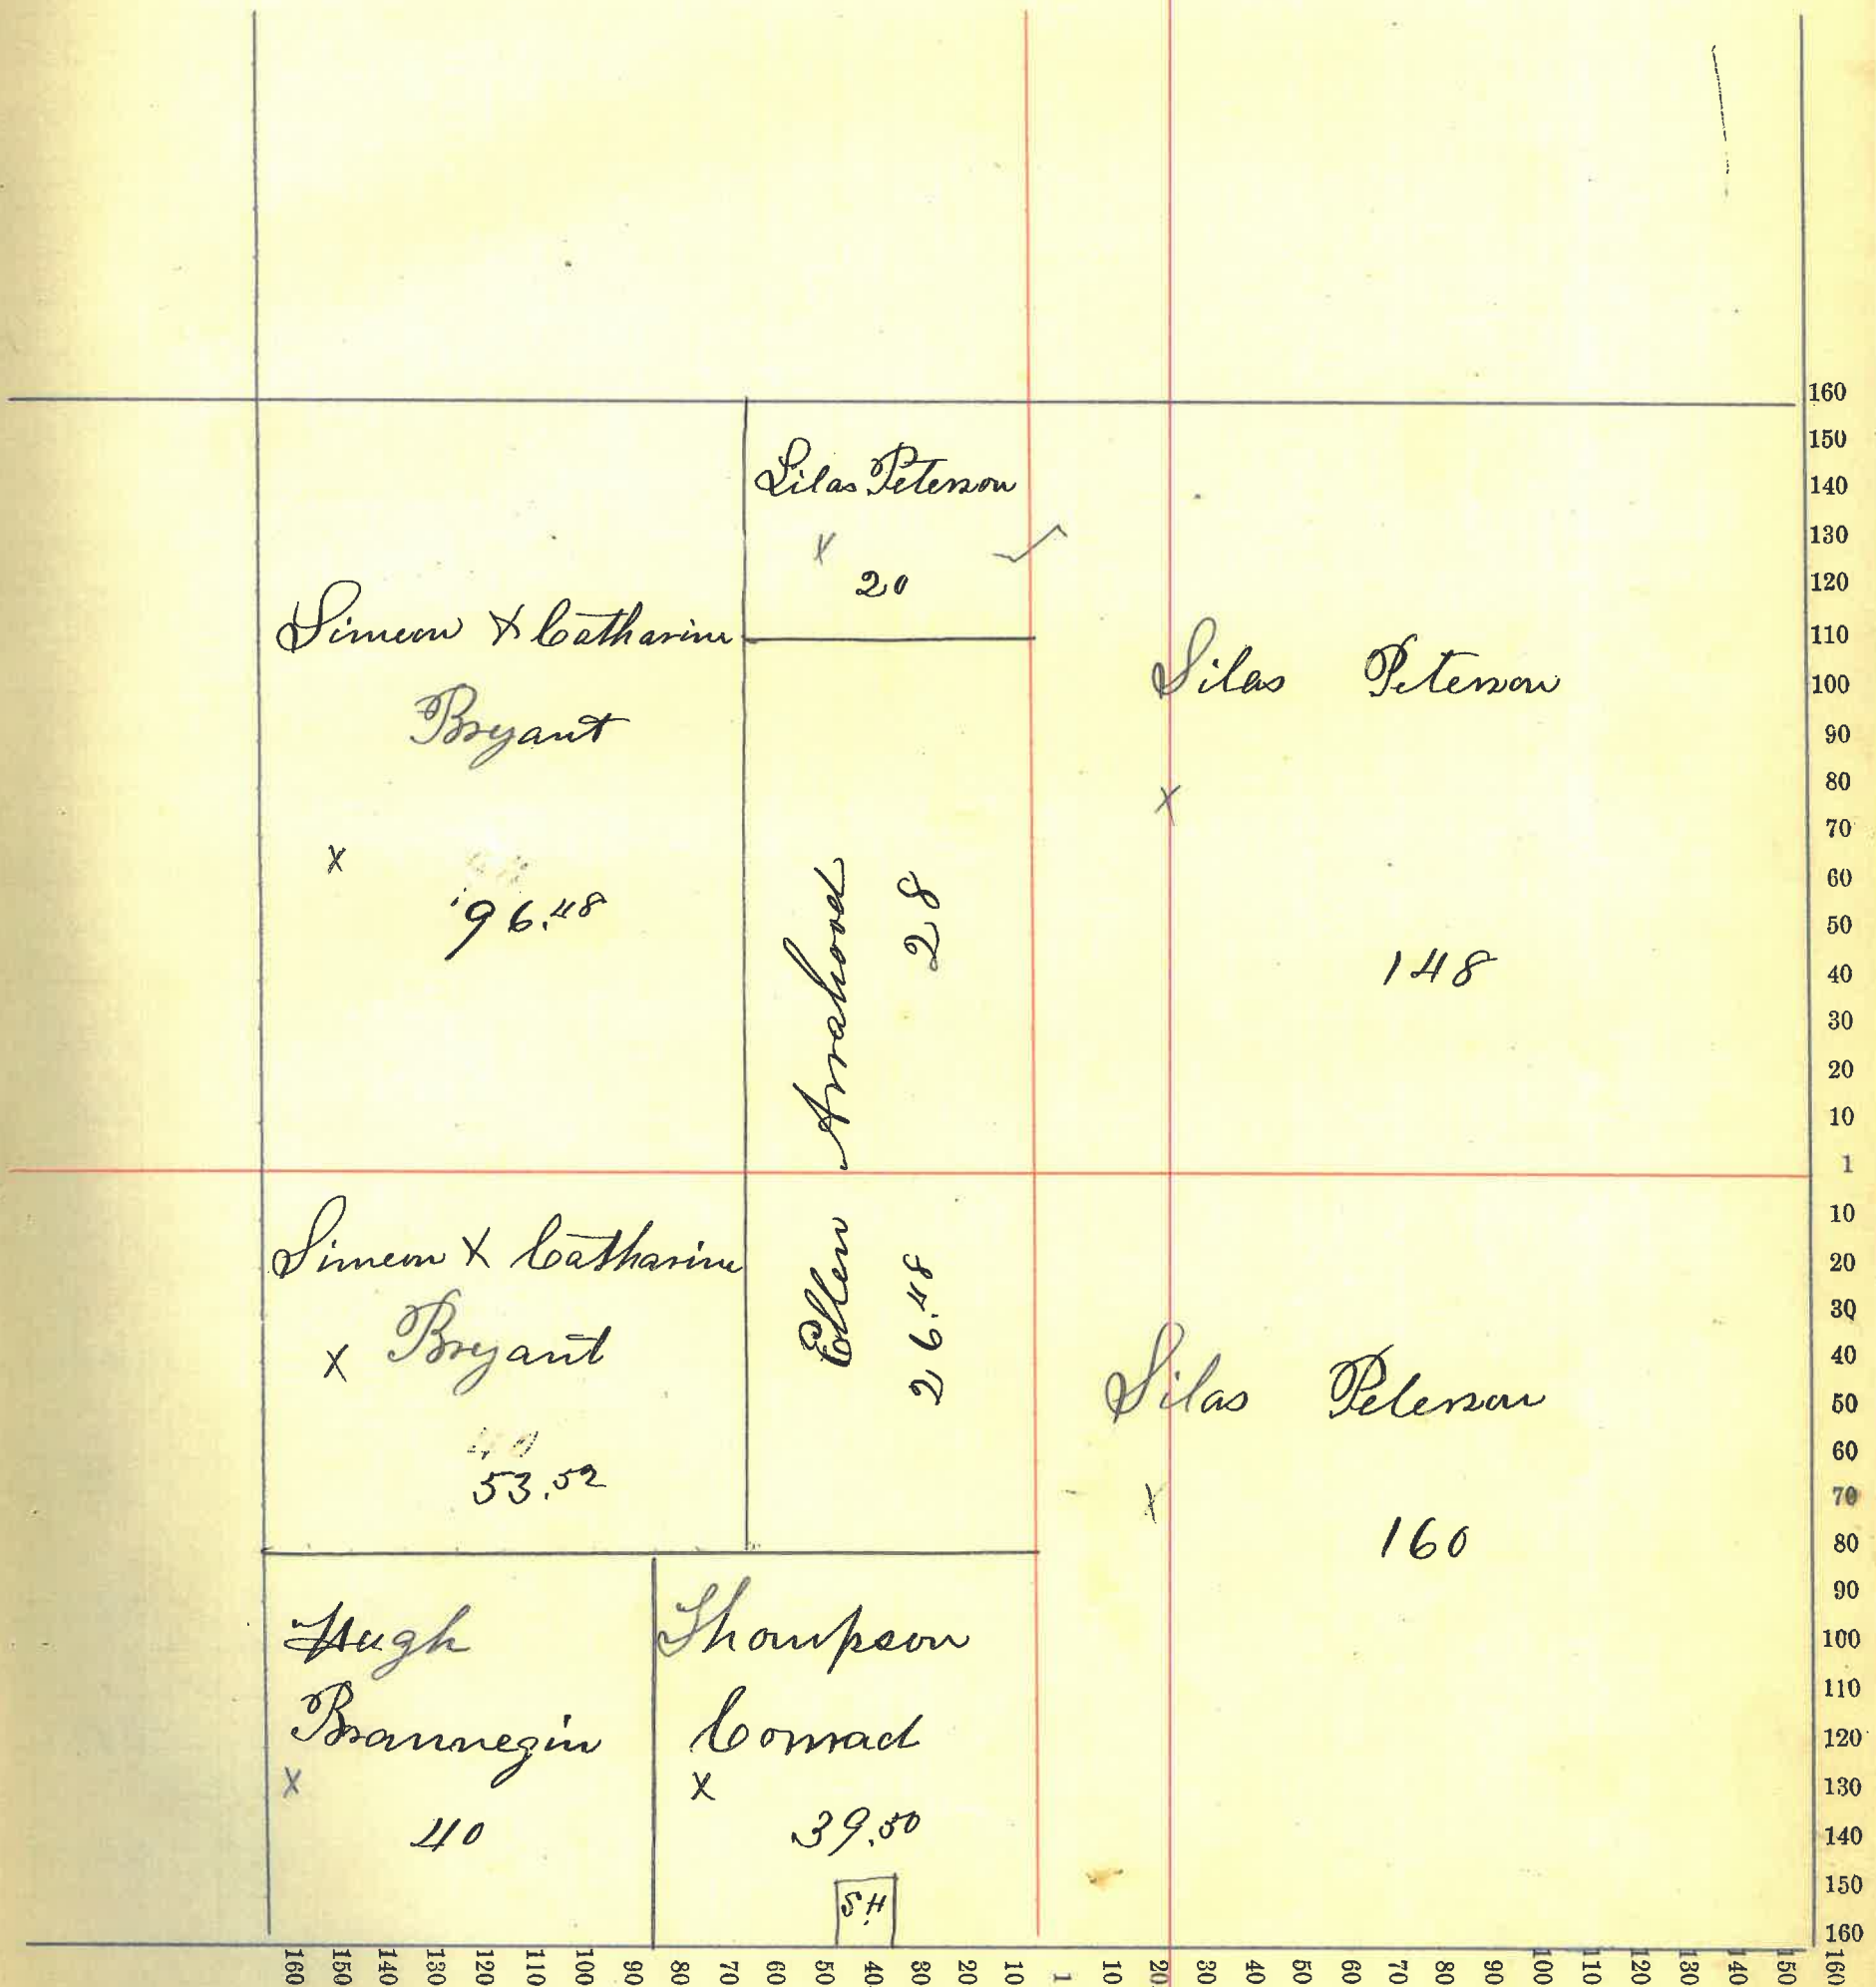 Silas Peterson
x
20
Simeon & Catharine
Bryant
x
96.48
Silas Peterson
x
148
Ellen Arrahood
28
26.48
Simeon & Catharine
x Bryant
53.52
Silas Peterson
x
160
Hugh
Brannegin
x
40
Thompson
Conrad
x
39.50
S.H
160
150
140
130
120
110
100
90
80
70
60
50
40
30
20
10
1
10
20
30
40
50
60
70
80
90
100
110
120
130
140
150
160
160 150 140 130 120 110 100 90 80 70 60 50 40 30 20 10 1 10 20 30 40 50 60 70 80 90 100 110 120 130 140 150 160